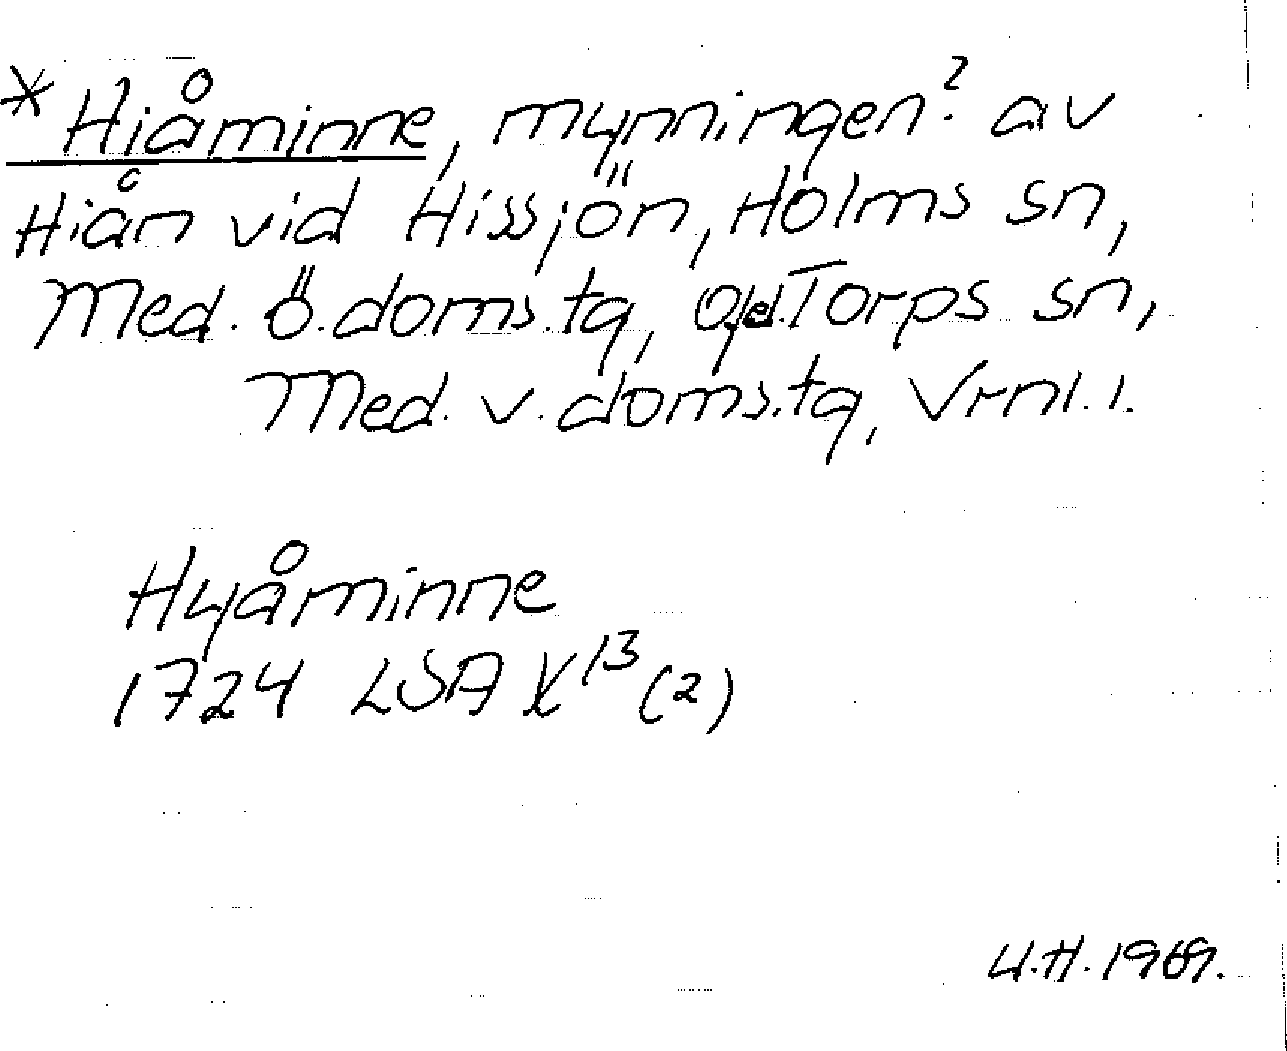 * Hiåminne, mynningen? av
Hiån vid Hissjön, Holms sn,
Med. Ö. doms.tg, Torps sn,
Med. v. doms.tg, Vrnl. l.
Hyåminne
1724 LSA X13 (2)
U.H. 1969.